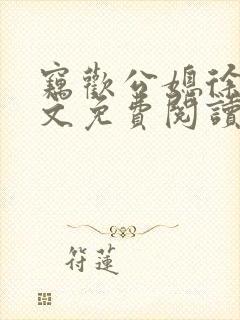 竊歡公媳徐
文免費閱讀
符蓮